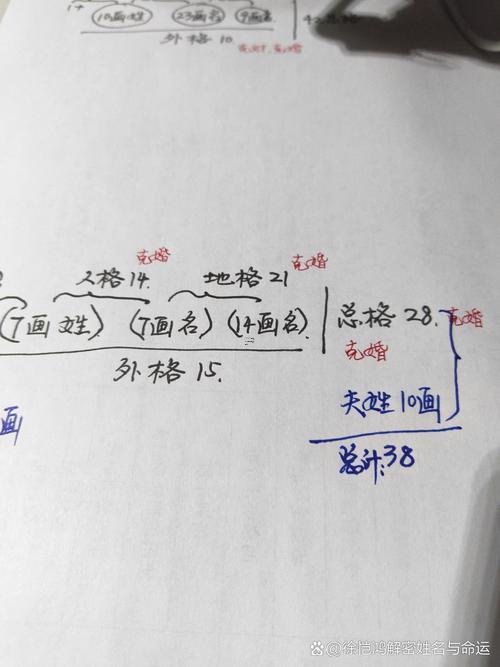 1+
10画姓 23画名 9画名
外格10
克婚
人格14. 克婚 地格21 克婚
(7画姓) (7画名) (14画名) 总格28. 克婚
克婚
外格15.
夫姓10画
画
总计:38
徐恺鸿解密姓名与命运